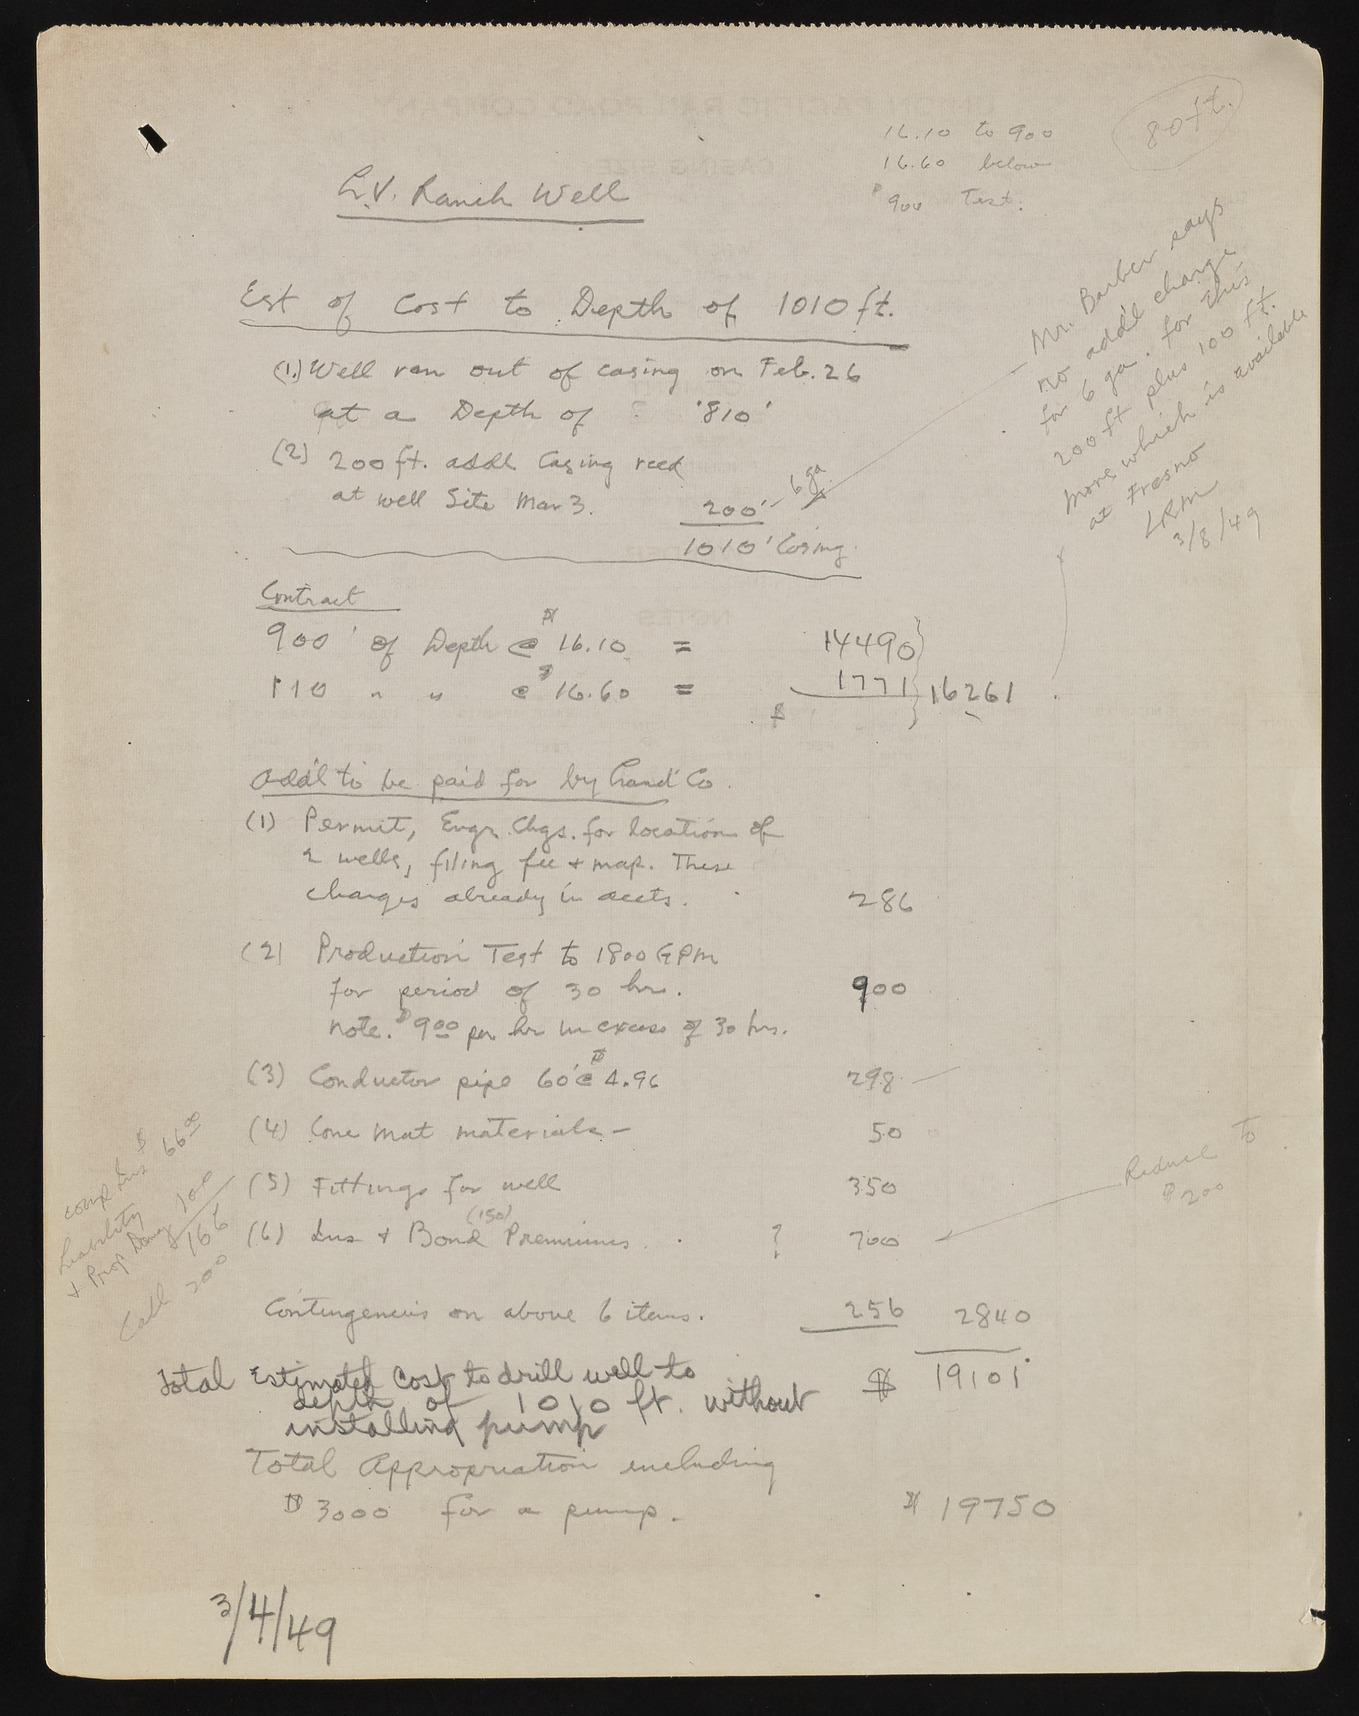 80 ft.
16.10 to 900
16.60 below
$900 Test.
L.V. Ranch Well
Est of Cost to Depth of 1010 ft.
(1.) Well ran out of casing on Feb. 26
at a Depth of '810'
(2) 200 ft. addl Casing recd
at well Site Mar 3. 200' - 6 ga.
1010' Casing.
Mr. Barber says
no add'l charge
for 6 ga. for this
200 ft plus 100 ft.
more which is available
at Fresno
LRM
3/8/49
Contract
900' of Depth @ $16.10 = 14490
110 " " @ $16.60 = 1771 16261
$
Add'l to be paid for by Land Co.
(1) Permit, Engr. Chgs. for location of
2 wells, filing fee + map. These
charges already in accts. 286
(2) Production Test to 1800 GPM
for period of 30 hrs. 900
Note. $9.00 per hr in excess of 30 hrs.
(3) Conductor pipe 60' @ $4.96 298
(4) Cone Mat materials - 50
(5) Fittings for well 350
(6) Ins + Bond (150) Premiums. ? 700
Reduce to
$200
Comp Ins $66.00
Liability
+ Prop Damg 100
166
Call 200
Contingencies on above 6 items. 256 2840
Total Estimated Cost to drill well to $19101
depth of 1010 ft. without
installing pump
Total Appropriation including
$3000 for a pump. $19750
3/4/49